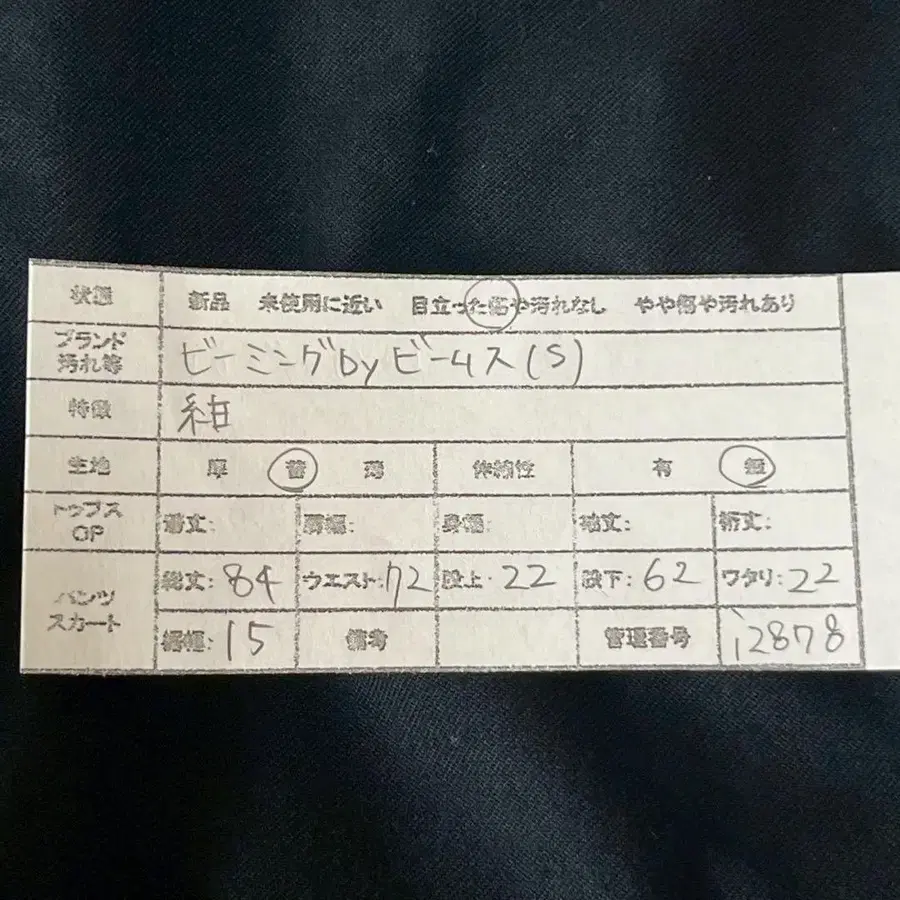 状態 新品 未使用に近い 目立った傷や汚れなし やや傷や汚れあり
ブランド
汚れ等 ビーミングbyビームス(S)
特徴 紺
生地 厚 普 薄 伸縮性 有 無
トップス
OP 着丈: 肩幅: 身幅: 袖丈: 裄丈:
パンツ
スカート 総丈:84 ウエスト:72 股上:22 股下:62 ワタリ:22
裾幅:15 備考 管理番号 i2878